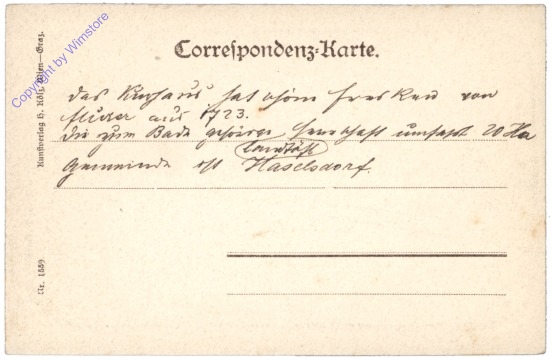 Correspondenz-Karte.
das Kurhaus hat schöne Fresken von
aus 1723.
die zum Bade gehörige Herrschaft umfasst 20 Ha
landtäfl
Gemeinde ist Haselsdorf.
Kunstverlag H. Wien—Graz.
Nr. 1559
Copyright by Wimstore